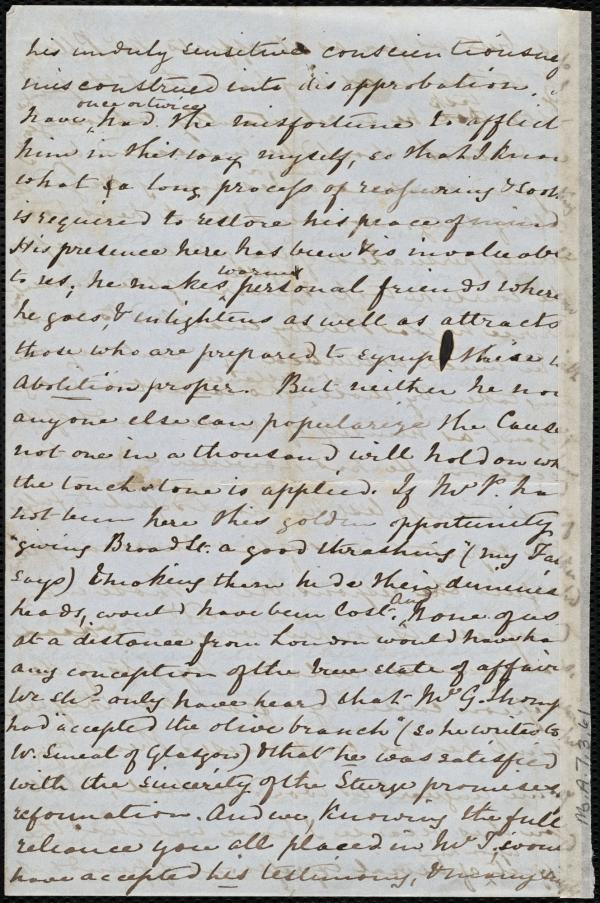 his unduly sensitive conscientiousness
misconstrued into disapprobation. I
have once or twice had the misfortune to afflict
him in this way myself, so that I know
what a long process of reassuring & sooth
is required to restore his peace of mind
His presence here has been & is invaluable
to us; he makes warm personal friends where
he goes, & enlightens as well as attracts
those who are prepared to symp thise w
Abolition proper. But neither he nor
anyone else can popularize the Cause
not one in a thousand will hold on wh
the touchstone is applied. If Mr P. ha
not been here this golden opportunity
"giving Broad St. a good thrashing" (my Fa
says) & making them hide their diminis
heads, would have been lost. And None of us
at a distance from London would have ha
any conception of the true state of affairs
We shd. only have heard that Mr G. Thomp
had "accepted the olive branch" (so he writes to
W. Smeal of Glasgow) & that he was satisfied
with the sincerity of the Sturge promises
reformation. And we, knowing the full
reliance you all placed in Mr T, woul
have accepted his testimony, & many
Ms.A.7.3.61